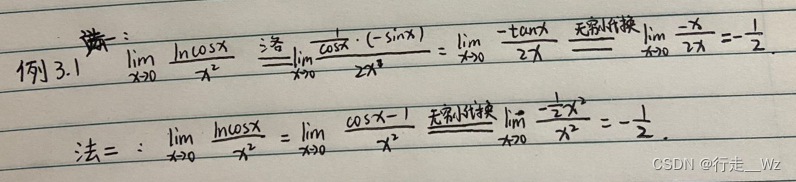 例3.1 法一: lim x→0 lncosx/x² 洛= lim x→0 (1/cosx · (-sinx))/2x = lim x→0 -tanx/2x 无穷小代换= lim x→0 -x/2x = -1/2.
法二: lim x→0 lncosx/x² = lim x→0 (cosx-1)/x² 无穷小代换= lim x→0 (-1/2 x²)/x² = -1/2.
CSDN @行走__Wz